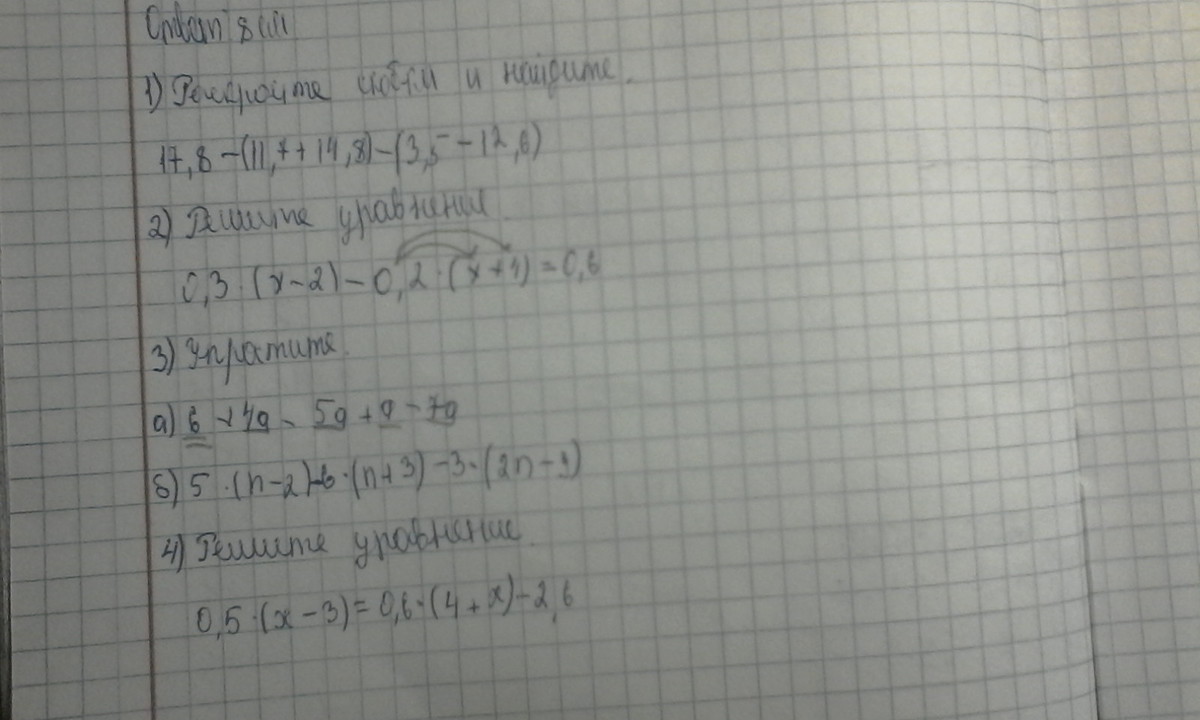 1) Раскройте скобки и найдите.
17,8-(11,7+14,8)-(3,5-12,6)
2) Решите уравнении
0,3·(x-2)-0,2·(x+4)=0,6
3) Упратите.
а) 6+4a-5a+a-7a
б) 5·(n-2)-6·(n+3)-3·(2n-9)
4) Решите уравнение.
0,5·(x-3)=0,6·(4+x)-2,6